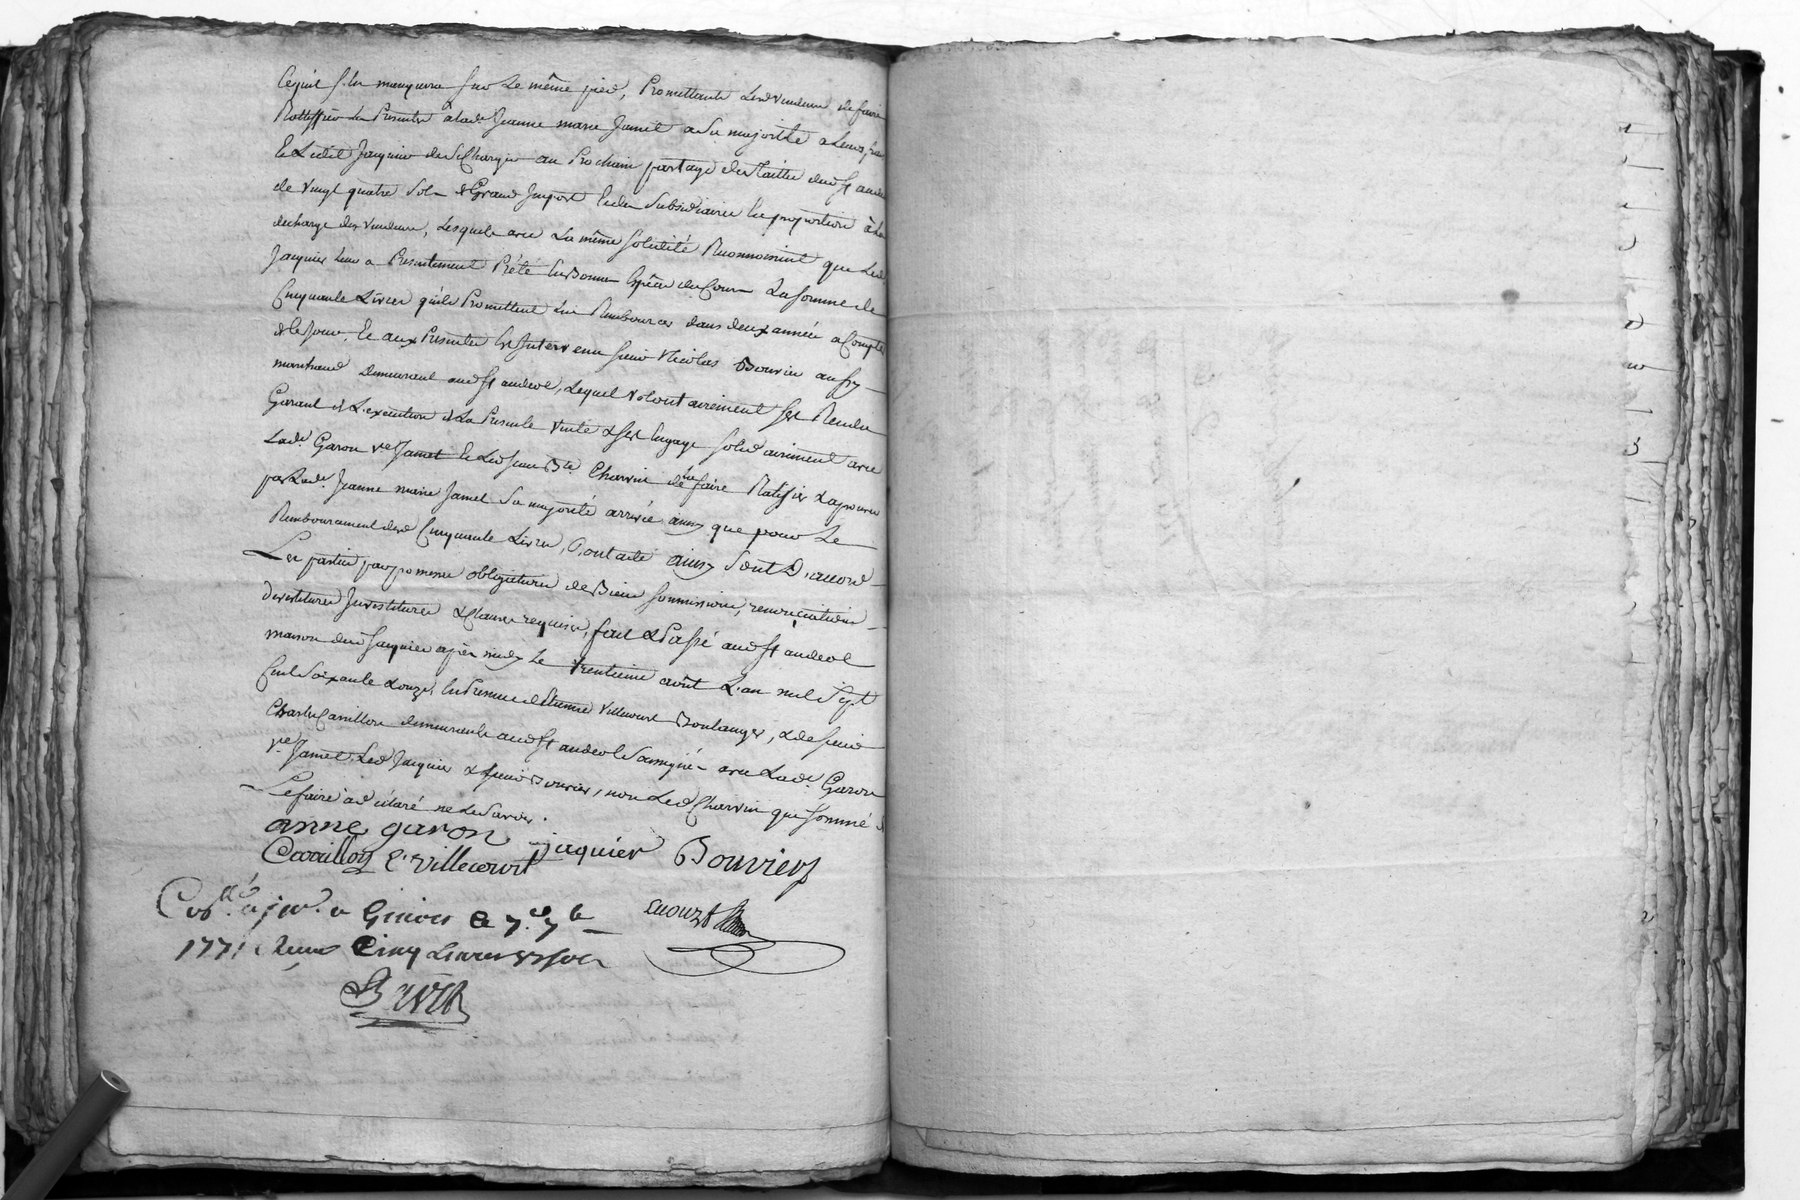 Ce quil s'en manquera sur le même pied, Promettants lesd vendeurs de faire
Rattiffier les Presentes a lad.e Jeanne marie Jamet a sa majorité a leurs frais
Et ledit Jaquier de se Charger au Prochain partage des tailles dud St andeol
de vingt quatre sols de Grand Impost Et des subsidiaires En proportion à la
decharge des vendeurs, Lesquels avec la même solidité Reconnoissent que led
Jaquier leur a Presentement Prété En Bonnes Espèces de Cours La somme de
Cinquante Livres qu'ils Promettent lui Rembourcer dans deux années a Compter
de Ce Jour, Et aux Presentes Est Intervenu sieur Nicolas Bouvier aussy
marchand demeurant aud St andeol, Lequel volontairement ses Rendu
Garant de L'execution de La Presente vente & ses Engagé solidairement avec
Lad.e Garon v.e Jamet Et Led Jean B.te Charvin de faire Ratifier & aprouver
par Lad.e Jeanne marie Jamet sa majorité arrivée ainsy que pour Le
Remboursement desd Cinquante Livres, Dont acte ainsy sont D'accord
Les parties par promesses obligations de Biens soumissions, renonciations
devestitures Investitures & Clauses requises, fait & Passé aud St andeol
maison dud Jaquier après midy Le trentieme août L'an mil sept
Cent soixante & onze, En Presence d'Etienne Villecourt Boulanger, & de sieur
Charles Cavillon demeurants aud St andeol Soussignés avec Lad.e Garon
v.e Jamet, Led Jaquier & sieur Bouvier, non Led Charvin que sommé de
Le faire a déclaré ne Le Savoir.
anne garon jaquier Bouvier
Cavaillon E. Villecourt
Con.lé à Givors Le 7.e 7.bre
1771 Reçu Cinq Livres sols